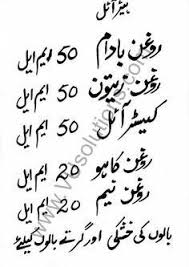 ہیئر آئل
روغن بادام 50 ایم ایل
روغن زیتون 50 ایم ایل
کیسٹر آئل 50 ایم ایل
روغن کاہو 20 ایم ایل
روغن نیم 20 ایم ایل
بالوں کی خشکی اور گرتے بالوں کیلئے